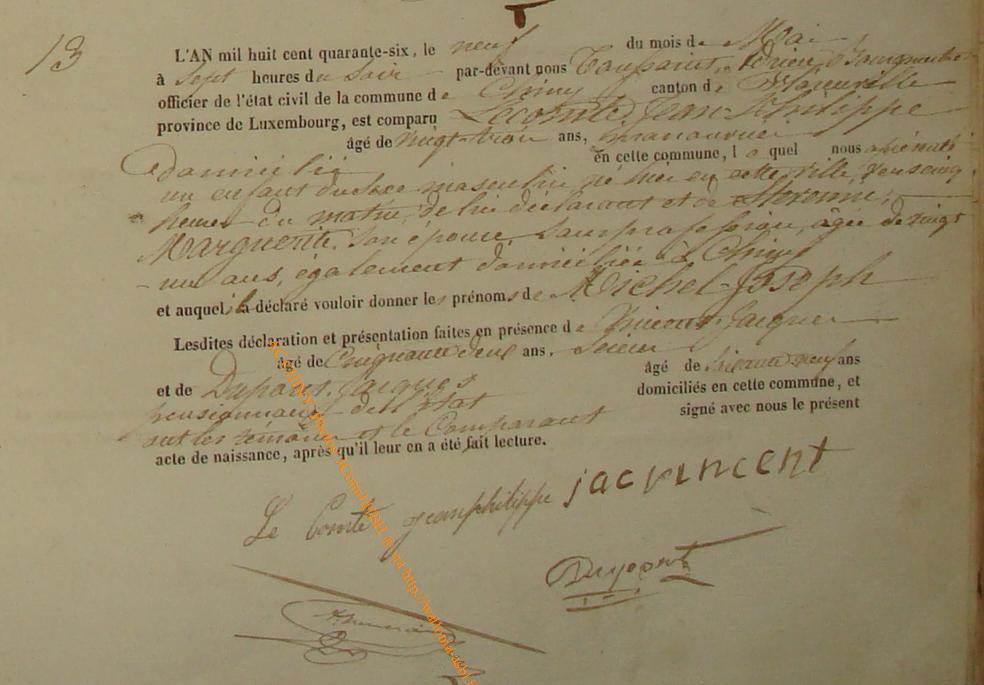 13
L'AN mil huit cent quarante-six, le neuf du mois de Mai
à sept heures du soir par-devant nous
officier de l'état civil de la commune de Chiny canton de Florenville
province de Luxembourg, est comparu Lecomte, Jean-Philippe
âgé de vingt-trois ans, manouvrier
domicilié en cette commune, l quel nous a présenté
un enfant du sexe masculin né hier en cette ville, vers cinq
heures du matin, de lui déclarant et de
Marguerite, son épouse, sans profession, âgée de vingt
un ans, également domiciliée à Chiny
et auquel il a déclaré vouloir donner les prénoms de Michel-Joseph
Lesdites déclaration et présentation faites en présence de Vincent, Jacques
âgé de Cinquante deux ans, scieur
et de Dupont, Jacques âgé de soixante neuf ans
pensionnaire de l'état domiciliés en cette commune, et
ont les témoins et le Comparant signé avec nous le présent
acte de naissance, après qu'il leur en a été fait lecture.
Le Comte jeanphilippe jac vincent
Dupont